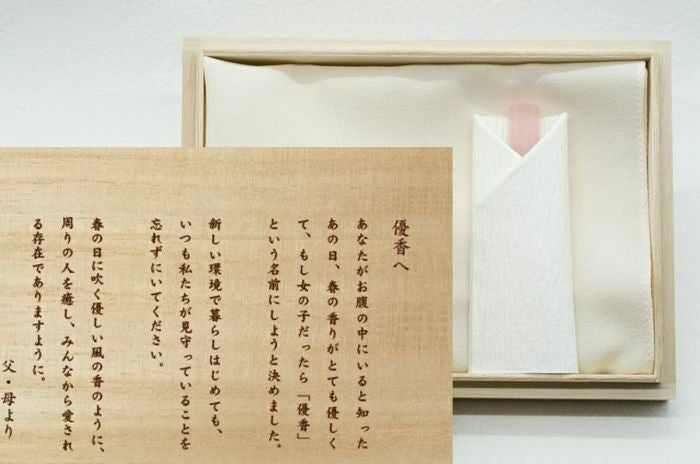 優香へ
あなたがお腹の中にいると知った
あの日、春の香りがとても優しく
て、もし女の子だったら「優香」
という名前にしようと決めました。
新しい環境で暮らしはじめても、
いつも私たちが見守っていることを
忘れずにいてください。
春の日に吹く優しい風の香のように、
周りの人を癒し、みんなから愛され
る存在でありますように。
父・母より